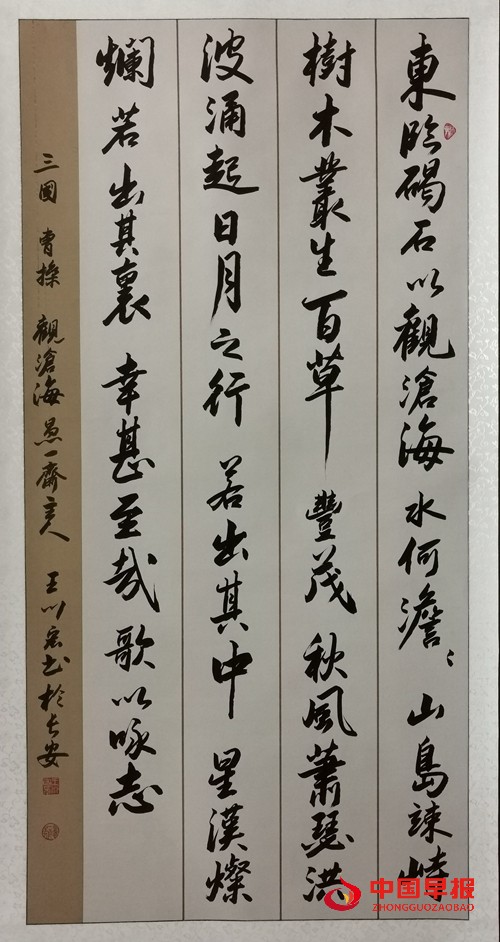 東臨碣石以觀滄海水何澹〻山島竦峙
樹木叢生百草豐茂秋風蕭瑟洪
波涌起日月之行若出其中星漢燦
爛若出其裏幸甚至哉歌以咏志
三國 曹操 觀滄海 一齋主人 王书於长安
中国早报
ZHONGGUOZAOBAO